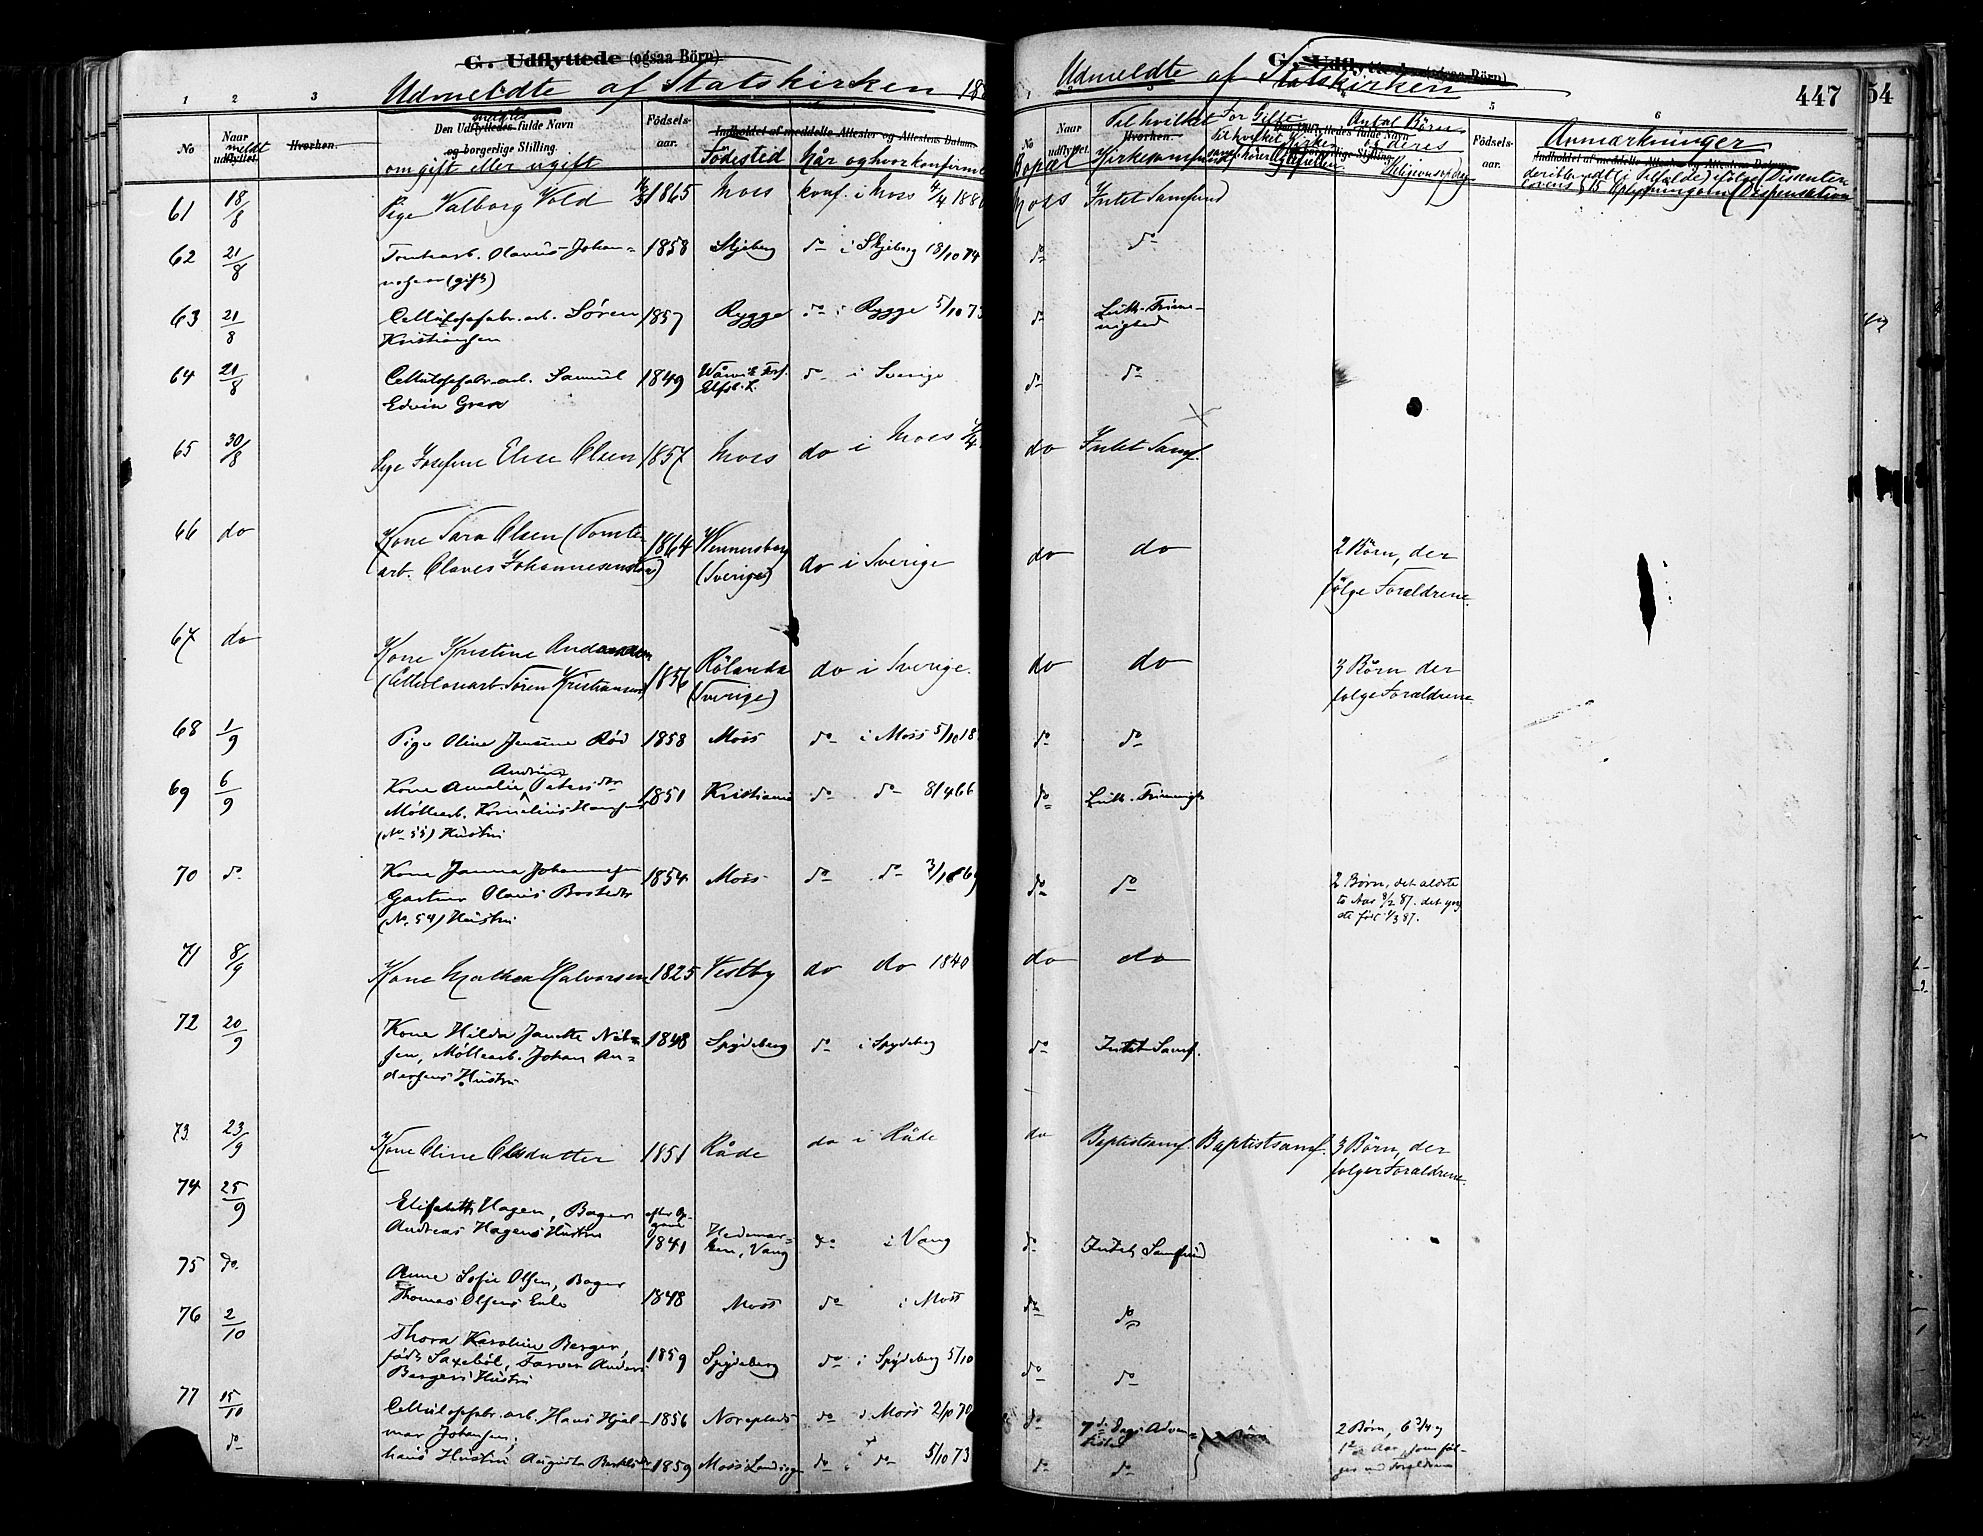 G. Udflyttede (ogsaa Börn)
Udmeldte af Statskirken 18
1 2 3
No
Naar udflyttet.
meldt
Hvorhen.
Den Udflyttedes fulde Navn
meldtes
og borgerlige Stilling.
om gift eller ugift
Födsels-aar.
Indholdet af meddelte Attester og Attestens Datum.
Födested
Når og hvor konfirme
61 18/8 Pige Valborg Vold 1865 Moss konf. i Moss 4/4 188
62 21/8 Tomtearb. Olavus Johan=
nesen (gift) 1858 Skjeberg do i Skjeberg 18/10 74
63 21/8 Cellulosefabr. arb. Sören
Kristiansen 1857 Rygge do i Rygge 5/10 73
64 21/8 Cellulosefabr. arb. Samuel
Edvin Gren 1849 do i Sverige
65 30/8 Pige Josefine Elise Olsen 1857 Moss do i Moss
66 do Kone Sara Olsen (Tomte
arb. Olaves Johannesens 1864 Wennersborg
(Sverige) do i Sverige
67 do Kone Kristine Andersen
(Cellulosearb. Sören Kristiansen) 1856 Rölanda
(Sverige) do i Sverige.
68 1/9 Pige Oline Jensine Röd 1858 Moss do i Moss 5/10 18
69 6/9 Kone Amalie Andrine Peters
Möllearb. Kornelius Hansen
(No 55) Hustru 1851 Kristiania do do 8/4 66
70 do Kone Janna Johannesen
Gartner Olavis Bostedts
(No. 54) Hustru 1854 Moss do do 3/10 69
71 8/9 Kone Mathea Halvorsen 1825 Vestby do do 1840
72 20/9 Kone Hilda Janette Nil=
sen, Möllearb. Johan An=
dersens Hustru 1848 Spydeberg do i Spydeberg
73 23/9 Kone Oline Olsdatter 1851 Råde do i Råde
74 25/9 Elisabeth Hagen, Bager
Andreas Hagens Hustru efter Op-
gave
1841 Hedemar=
ken, Vang do i Vang
75 do Anne Sofie Olsen, Bager
Thomas Olsens Enke 1848 Moss do i Moss
76 2/10 Thora Karoline Berger,
födt Saxeböl, Farver Anders
Bergers Hustru 1859 Spydeberg do i Spydeberg 5/10
77 15/10 Cellulosefabr. arb. Hans Hjal=
mar Johansen, 1856 do i Moss 2/10 70
do hans Hustru Augusta 1859 Moss Landsogn do i do 5/10 73
G. Udflyttede (ogsaa Börn)
Udmeldte af Statskirken
447
54
5 6
No
Bopæl
Naar udflyttet.
Til hvilket
Hvorhen.
Kirkesamfund
For Gifte
til hvilket Kirke
Antal Börn
og deres
Religionsopdrag
Födsels-aar.
Anmærkninger
Indholdet af meddelte Attester og Attestens Datum.
deriblandt (i Tilfælde) ifölge Dissenter
lovens § 15 Oplysning om (Dispensation
Moss Intet Samfund
do do
do Luth. Frime-
nighed
do do
do Intet Samf.
do do 2 Börn, der
fölge Forældrene.
do do 3 Börn der
følge Forældrene
do do
do Luth. Frimenigh
do do 2 Börn, det ældste
to Aar 8/2 87. det yng
ste först 1/3 87.
do do
do Intet Samf.
do Baptistsamf. Baptistsamf. 3 Börn, der
følger Forældrene.
do Intet Samfund
do do
do do
do 7de Dags Adven=
tister 2 Börn 2 Börn, 6 3/4 og
1 1/2 Aar, som föl=
ges med Forældrene
do do